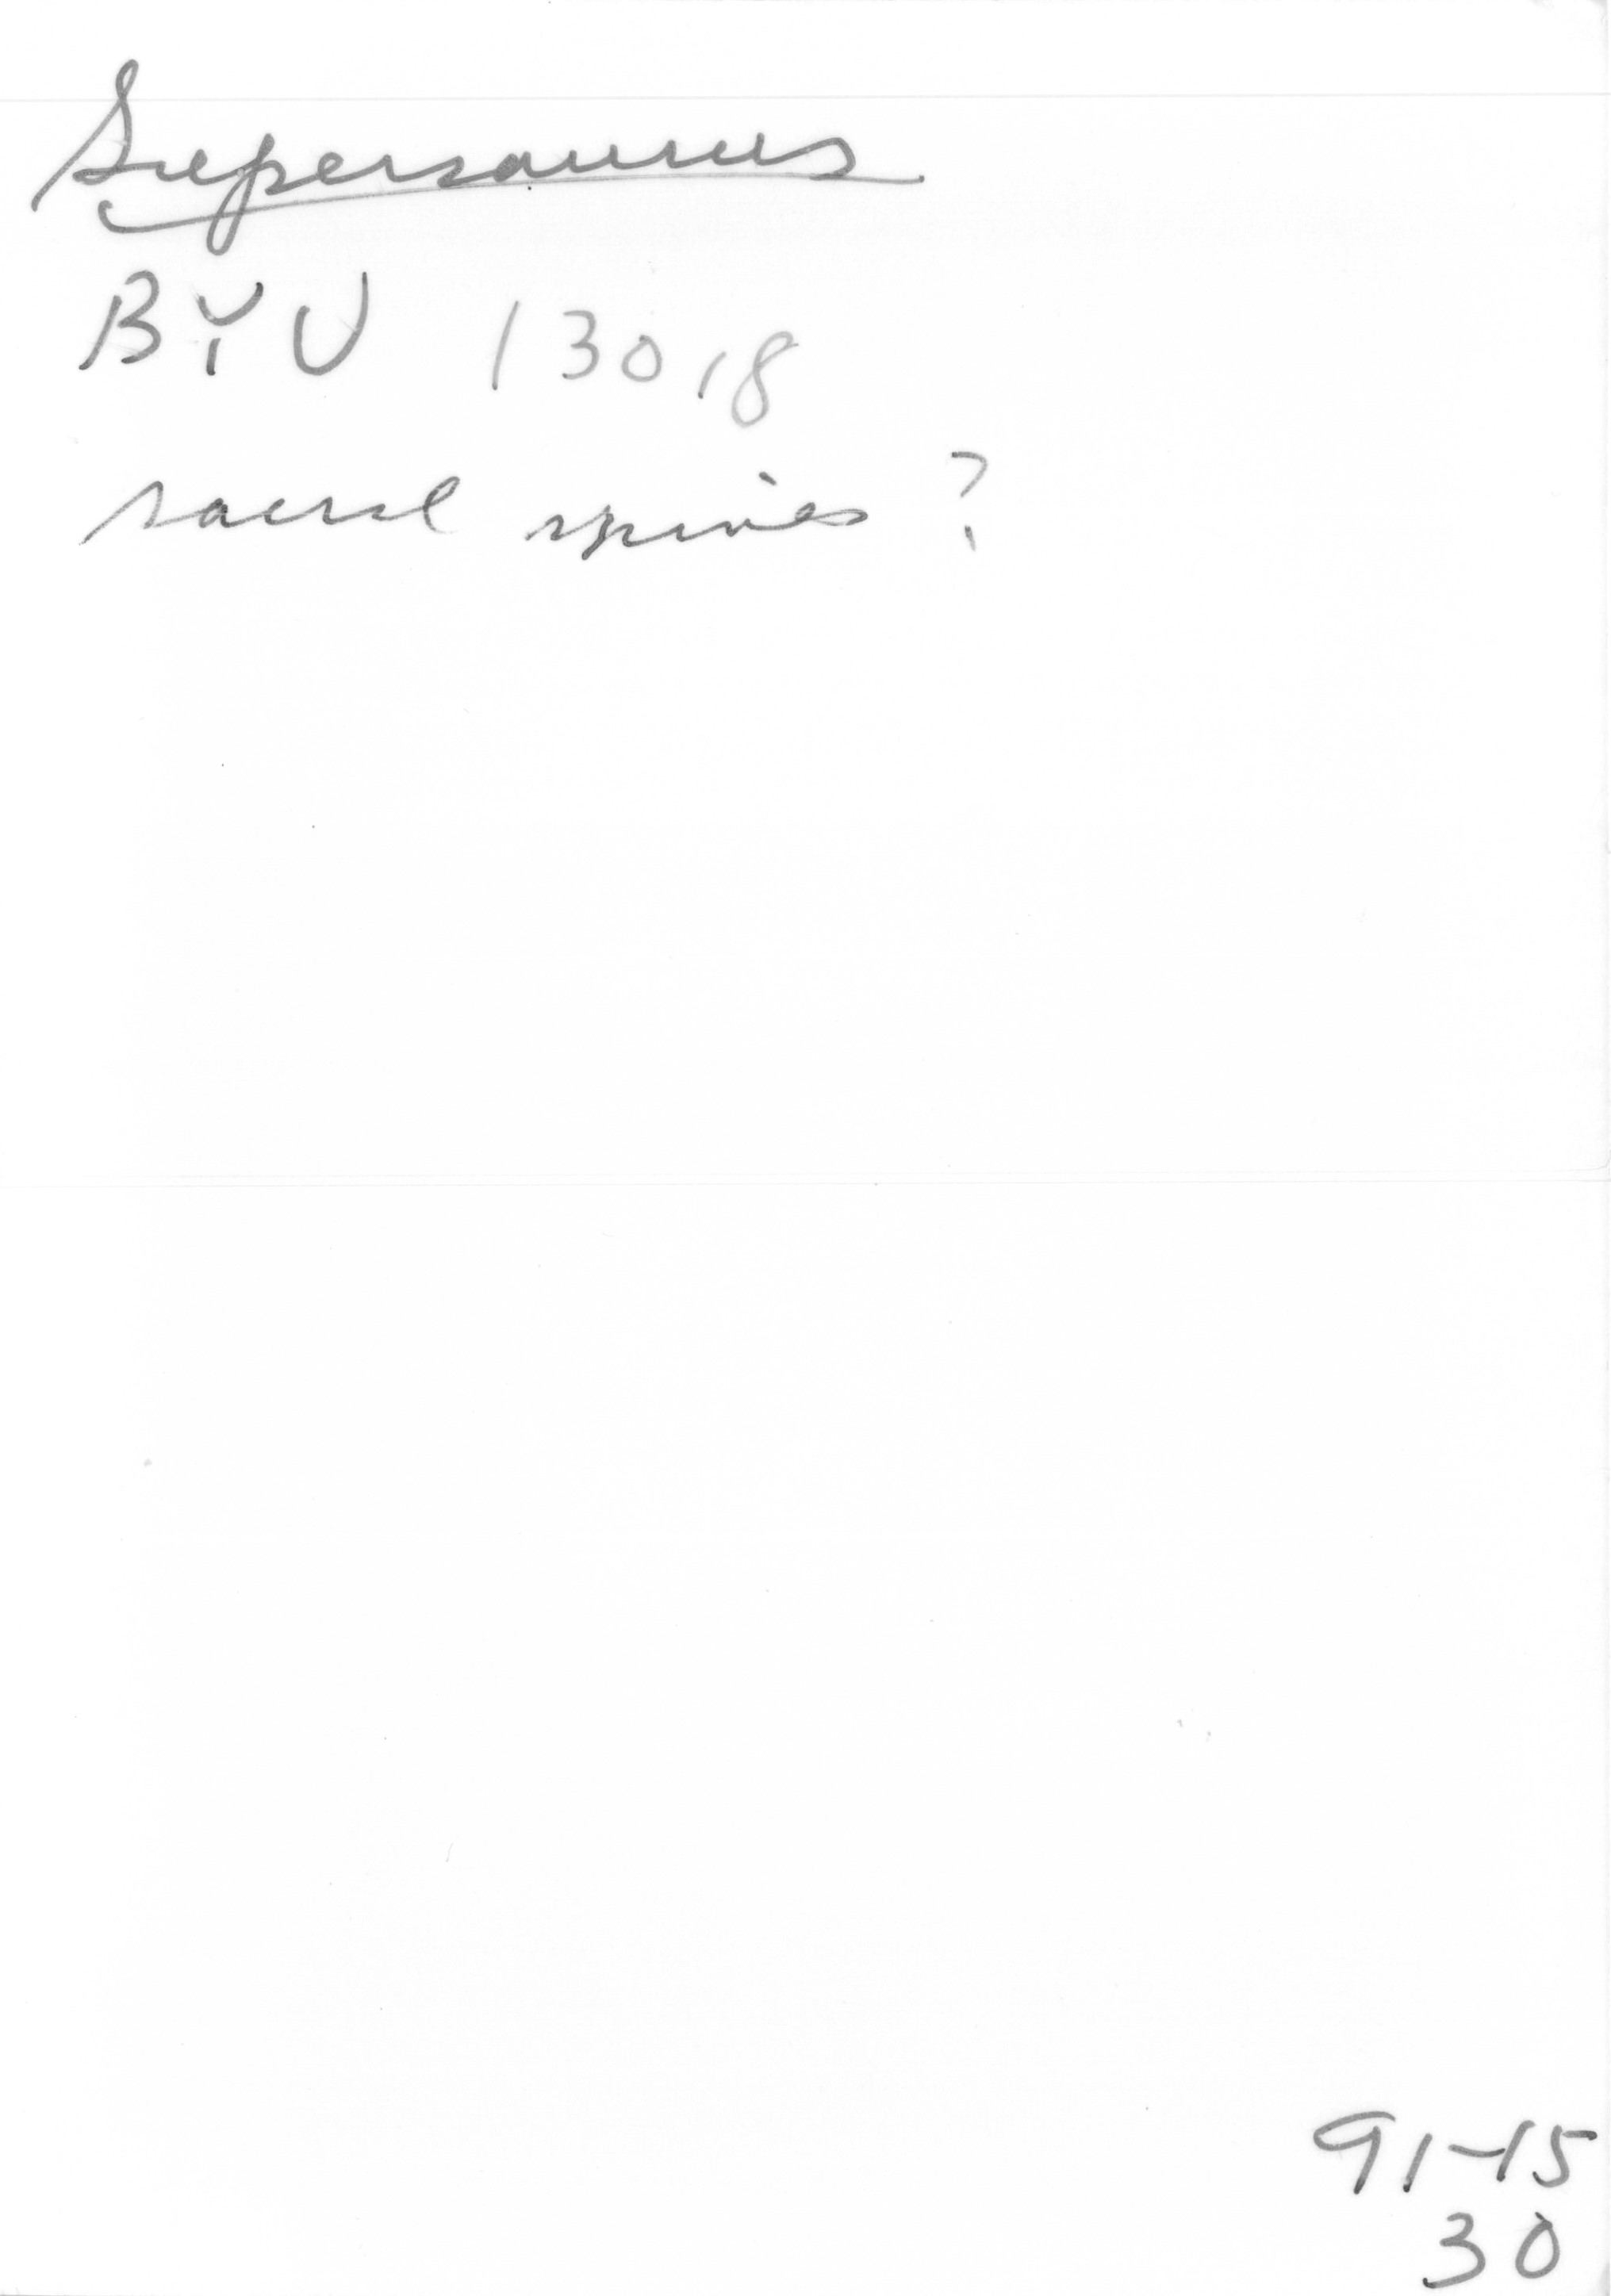 Supersaurus
BYU 13018
sacral spines ?
91-15
30